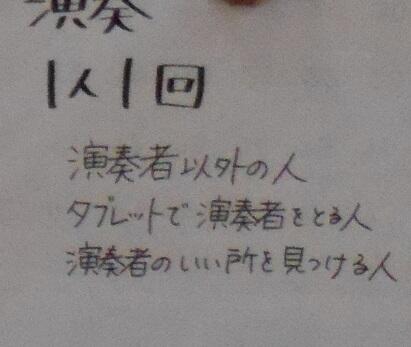 演奏
1人1回
演奏者以外の人
タブレットで演奏者をとる人
演奏者のいい所を見つける人